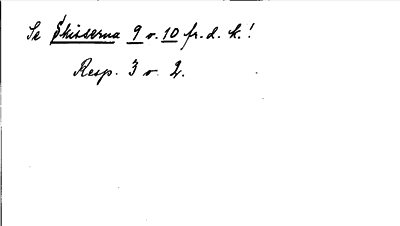 Se Skisserna 9 o. 10 fr. d. k.!
Resp. 3 o 2.